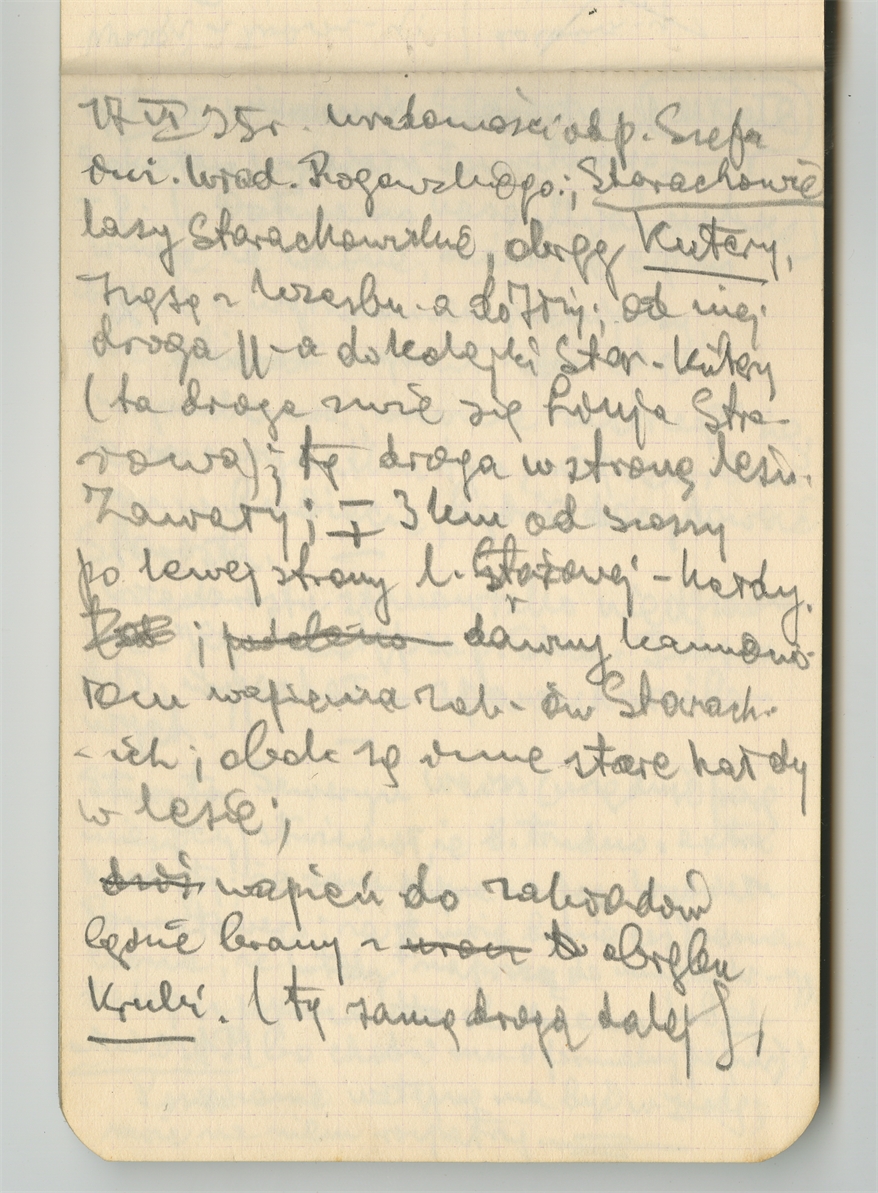 17 VI 35r. wiadomości od p. Szefa
inż. Wład. Rogowskiego:; Starachowice
lasy Starachowickie, obręg Kutery,
szosą z a do Iłży; od niej
droga #-a do kolejki Star.-Kutery
(ta droga zwie się Linja Stra-
rowa); tą droga w stronę leśn.
Zawały; ∓ 3 km od szosy
po lewej strony l. Stażowej - hałdy.
; podobno dawny kamieno-
łom wapienia zakł-ów Starach-
-ich; obok są inne stare hałdy
w lesie;
dziś wapień do zakładów
będzie brany z to obrębu
Kruki. (tą samą drogą dalej),